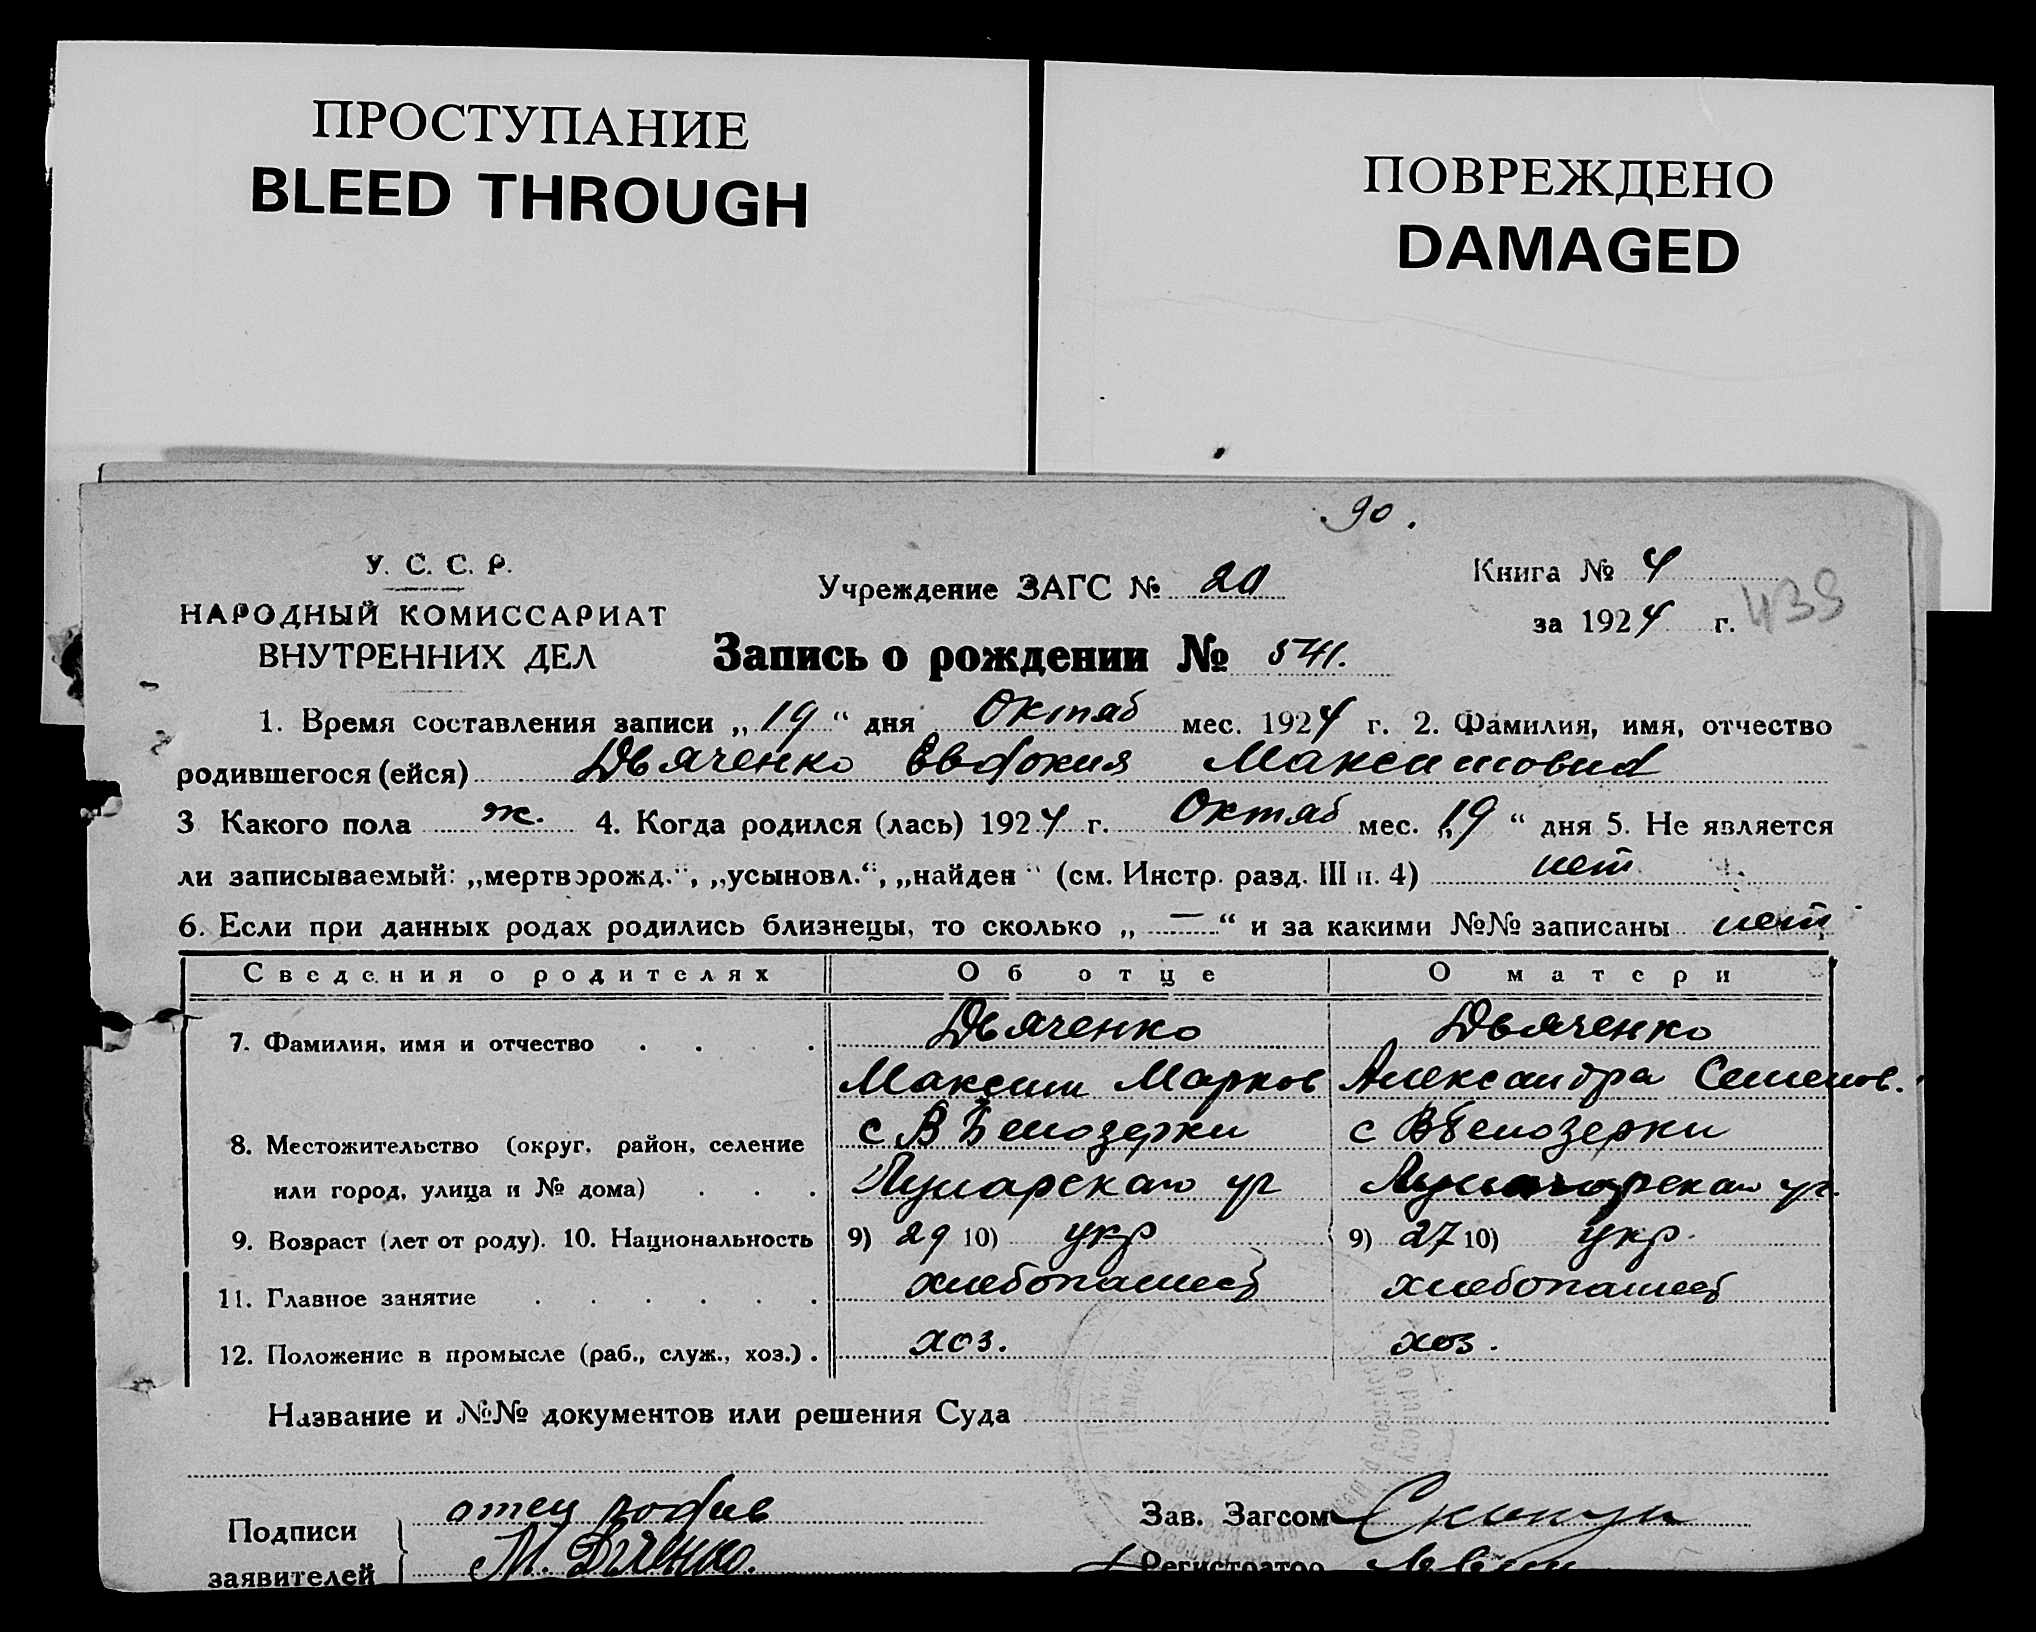 ПРОСТУПАНИЕ
BLEED THROUGH
ПОВРЕЖДЕНО
DAMAGED
90.
У. С. С. Р.
НАРОДНЫЙ КОМИССАРИАТ
ВНУТРЕННИХ ДЕЛ
Учреждение ЗАГС № 20
Книга № 4
за 1924 г.
439
Запись о рождении № 541.
1. Время составления записи „19“ дня Октяб мес. 1924 г. 2. Фамилия, имя, отчество
родившегося (ейся) Дьяченко Евдокия Максимовна
3 Какого пола ж. 4. Когда родился (лась) 1924 г. Октяб мес. „19“ дня 5. Не является
ли записываемый: „мертворожд.“, „усыновл.“, „найден“ (см. Инстр. разд. III п. 4) нет
6. Если при данных родах родились близнецы, то сколько „—“ и за какими №№ записаны нет
Сведения о родителях Об отце О матери
7. Фамилия, имя и отчество Дьяченко Дьяченко
Максим Марков Александра Семенов.
8. Местожительство (округ, район, селение с В Белозерки с В Белозерки
или город, улица и № дома) ул ул.
9. Возраст (лет от роду). 10. Национальность 9) 29 10) укр 9) 27 10) укр.
11. Главное занятие хлебопашец хлебопашец
12. Положение в промысле (раб., служ., хоз.) хоз. хоз.
Название и №№ документов или решения Суда
Подписи
заявителей
отец
М. Дяченко.
Зав. Загсом
Регистратор